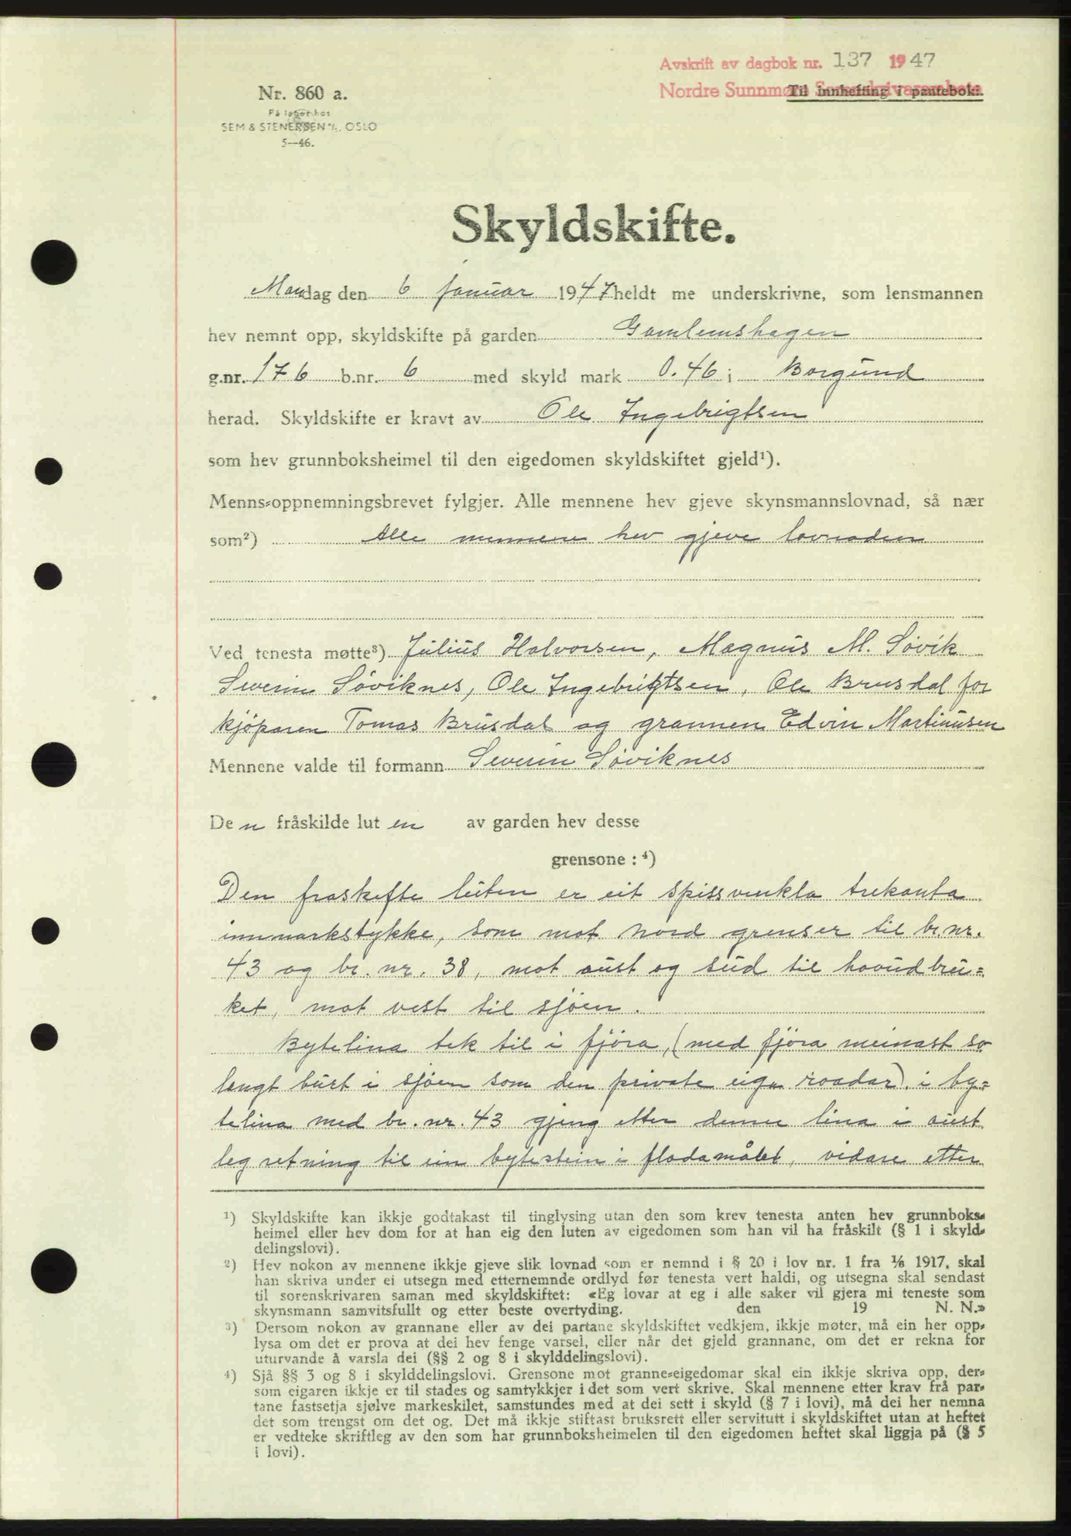 Avskrift av dagbok nr. 137 1947
Nordre Sunnmøre Sorenskrivarembete
Til innhefting i panteboki.
Nr. 860 a.
På lager hos
SEM & STENERSEN A/S, OSLO
5—46.
Skyldskifte.
Mandag den 6 januar 1947 heldt me underskrivne, som lensmannen
hev nemnt opp, skyldskifte på garden Gamlemshagen
g.nr. 176 b.nr. 6 med skyld mark 0.46 i Borgund
herad. Skyldskifte er kravt av Ole Ingebrigtsen
som hev grunnboksheimel til den eigedomen skyldskiftet gjeld¹).
Menns-oppnemningsbrevet fylgjer. Alle mennene hev gjeve skynsmannslovnad, så nær
som²) Alle mennene hev gjeve lovnaden
Ved tenesta møtte³) Julius Halvorsen, Magnus M. Søvik
Severin Søviknes, Ole Ingebrigtsen, Ole Brusdal for
kjøparen Tomas Brusdal og grannen Edvin Martinusen
Mennene valde til formann Severin Søviknes
Den fråskilde luten av garden hev desse
grensone : ⁴)
Den fraskifte luten er eit spissvinkla trekanta
innmarkstykke, som mot nord grenser til br.nr.
43 og br. nr. 38, mot aust og sud til hovudbru=
ket, mot vest til sjøen.
Bytelina tek til i fjøra, (med fjøra meinast so
langt burt i sjøen som den private eige raadar) i by=
telina med br. nr. 43 gjeng etter denne lina i aust
leg retning til ein bytestein i flodamålet, vidare etter
¹) Skyldskifte kan ikkje godtakast til tinglysing utan den som krev tenesta anten hev grunnboks-
heimel eller hev dom for at han eig den luten av eigedomen som han vil ha fråskilt (§ 1 i skyld-
delingslovi).
²) Hev nokon av mennene ikkje gjeve slik lovnad som er nemnd i § 20 i lov nr. 1 fra ⅙ 1917, skal
han skriva under ei utsegn med etternemnde ordlyd før tenesta vert haldi, og utsegna skal sendast
til sorenskrivaren saman med skyldskiftet: «Eg lovar at eg i alle saker vil gjera mi teneste som
skynsmann samvitsfullt og etter beste overtyding. den 19 N. N.»
³) Dersom nokon av grannane eller av dei partane skyldskiftet vedkjem, ikkje møter, må ein her opp-
lysa om det er prova at dei hev fenge varsel, eller når det gjeld grannane, om det er rekna for
uturvande å varsla dei (§§ 2 og 8 i skylddelingslovi).
⁴) Sjå §§ 3 og 8 i skylddelingslovi. Grensone mot granne-eigedomar skal ein ikkje skriva opp, der-
som eigaren ikkje er til stades og samtykkjer i det som vert skrive. Skal mennene etter krav frå par-
tane fastsetja sjølve markeskilet, samstundes med at dei sett i skyld (§ 7 i lovi), må dei her nemna
det som trengst om det og. Det må ikkje stiftast bruksrett eller servitutt i skyldskiftet utan at heftet
er vedteke skriftleg av den som har grunnboksheimelen til den eigedomen heftet skal liggja på (§ 5
i lovi).